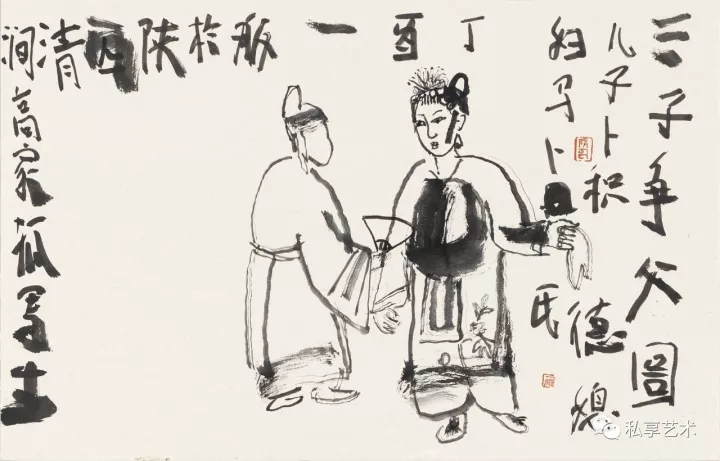 三子争父图
儿子卜积德媳
妇马卜氏
丁酉一於陕西清涧
高家写生
私享艺术